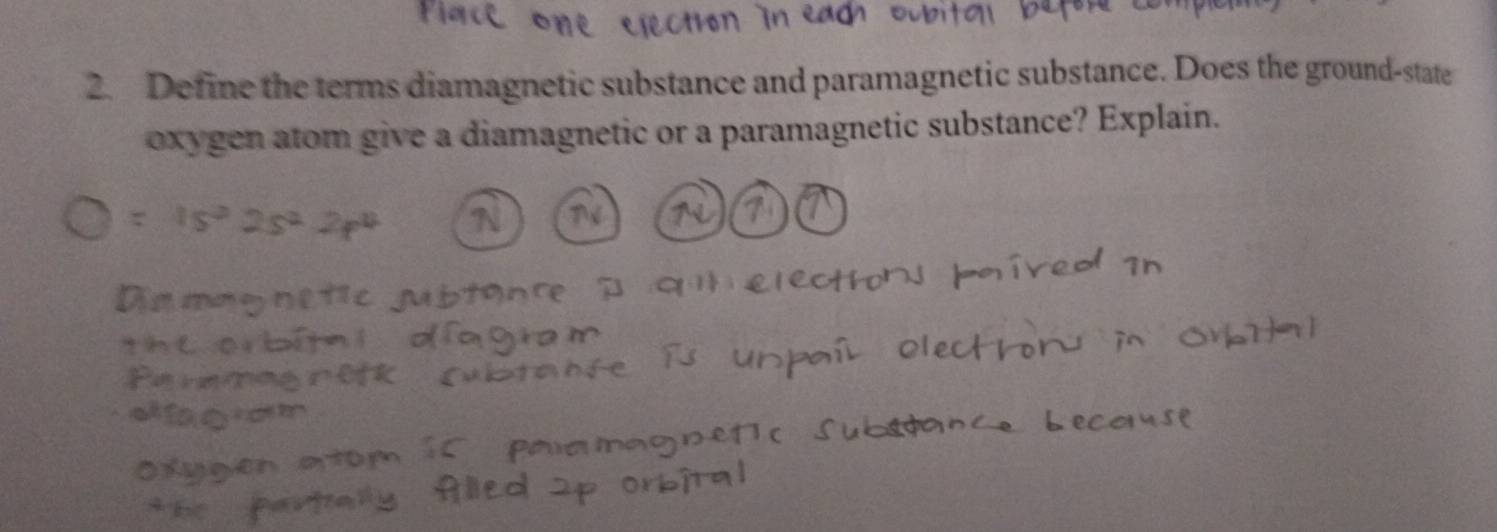 Place one electron in each orbital before
2. Define the terms diamagnetic substance and paramagnetic substance. Does the ground-state
oxygen atom give a diamagnetic or a paramagnetic substance? Explain.
O = 1s² 2s² 2p⁴ ↑↓ ↑↓ ↑↓ ↑ ↑
Diamagnetic subtance is all electrons paired in
the orbital diagram
Paramagnetic subtanse is unpair electrons in orbital
diagram
oxygen atom is paramagnetic substance because
the partially filled 2p orbital